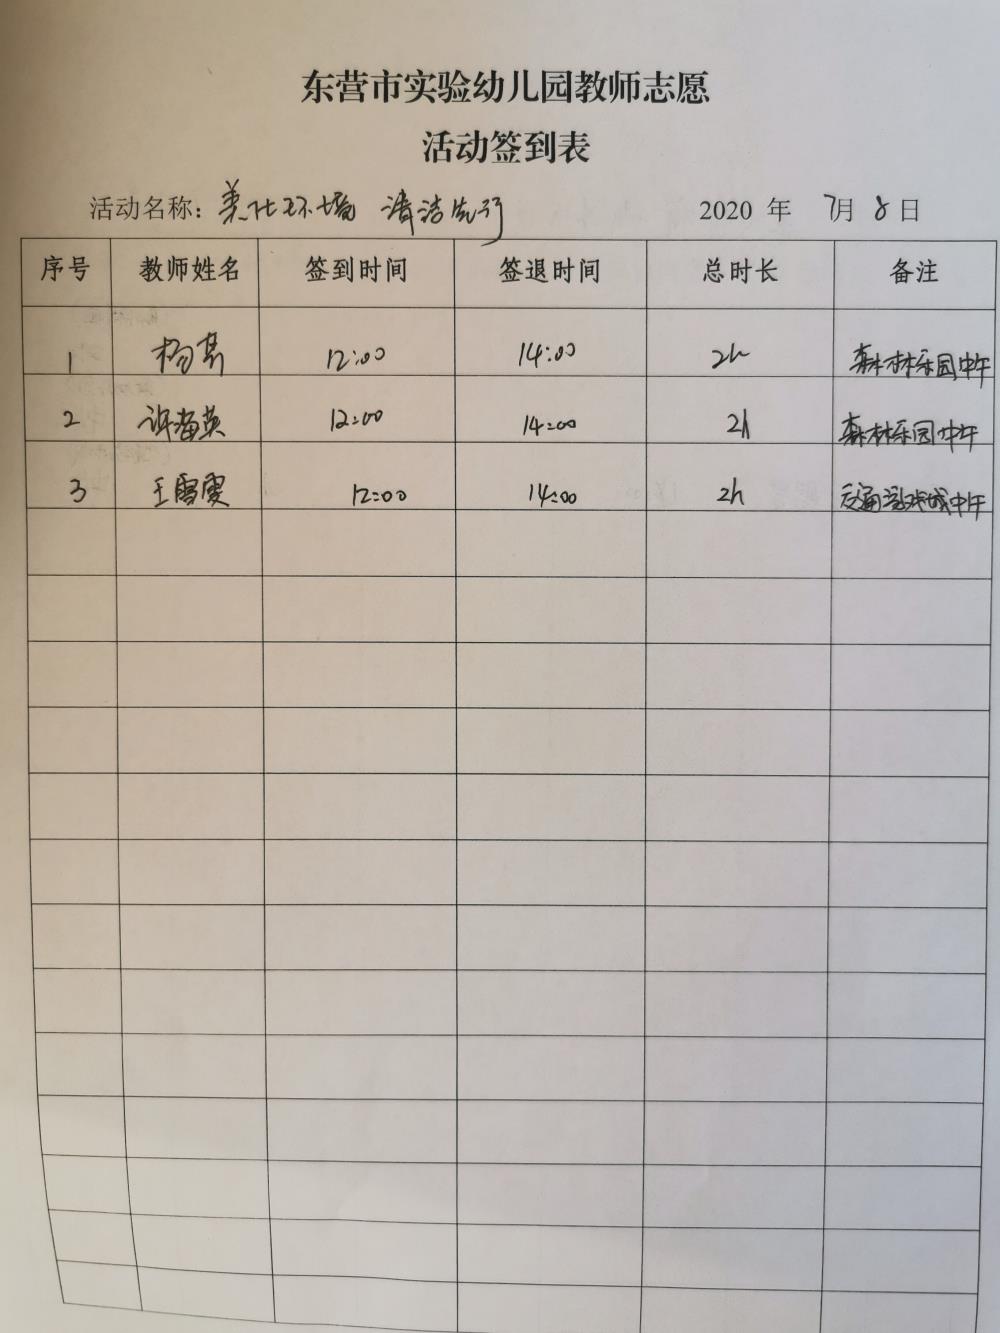 东营市实验幼儿园教师志愿
活动签到表
活动名称：美化环境 清洁先行 2020 年 7月 8 日
序号 教师姓名 签到时间 签退时间 总时长 备注
1 杨 12:00 14:00 2h 森林乐园中午
2 许海英 12:00 14:00 2h 森林乐园中午
3 王雪雯 12:00 14:00 2h 交通游戏城中午